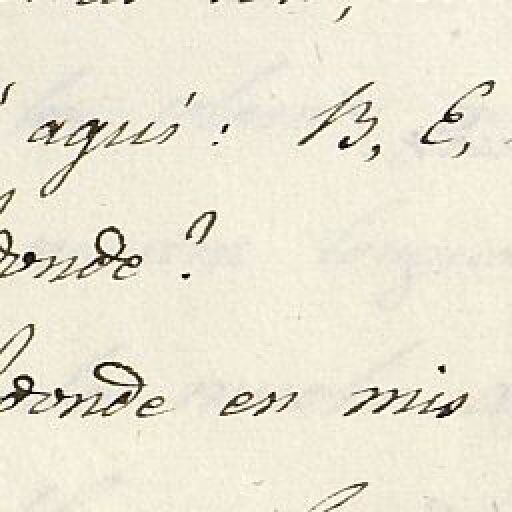 aquí: B, E,
donde?
donde en mis